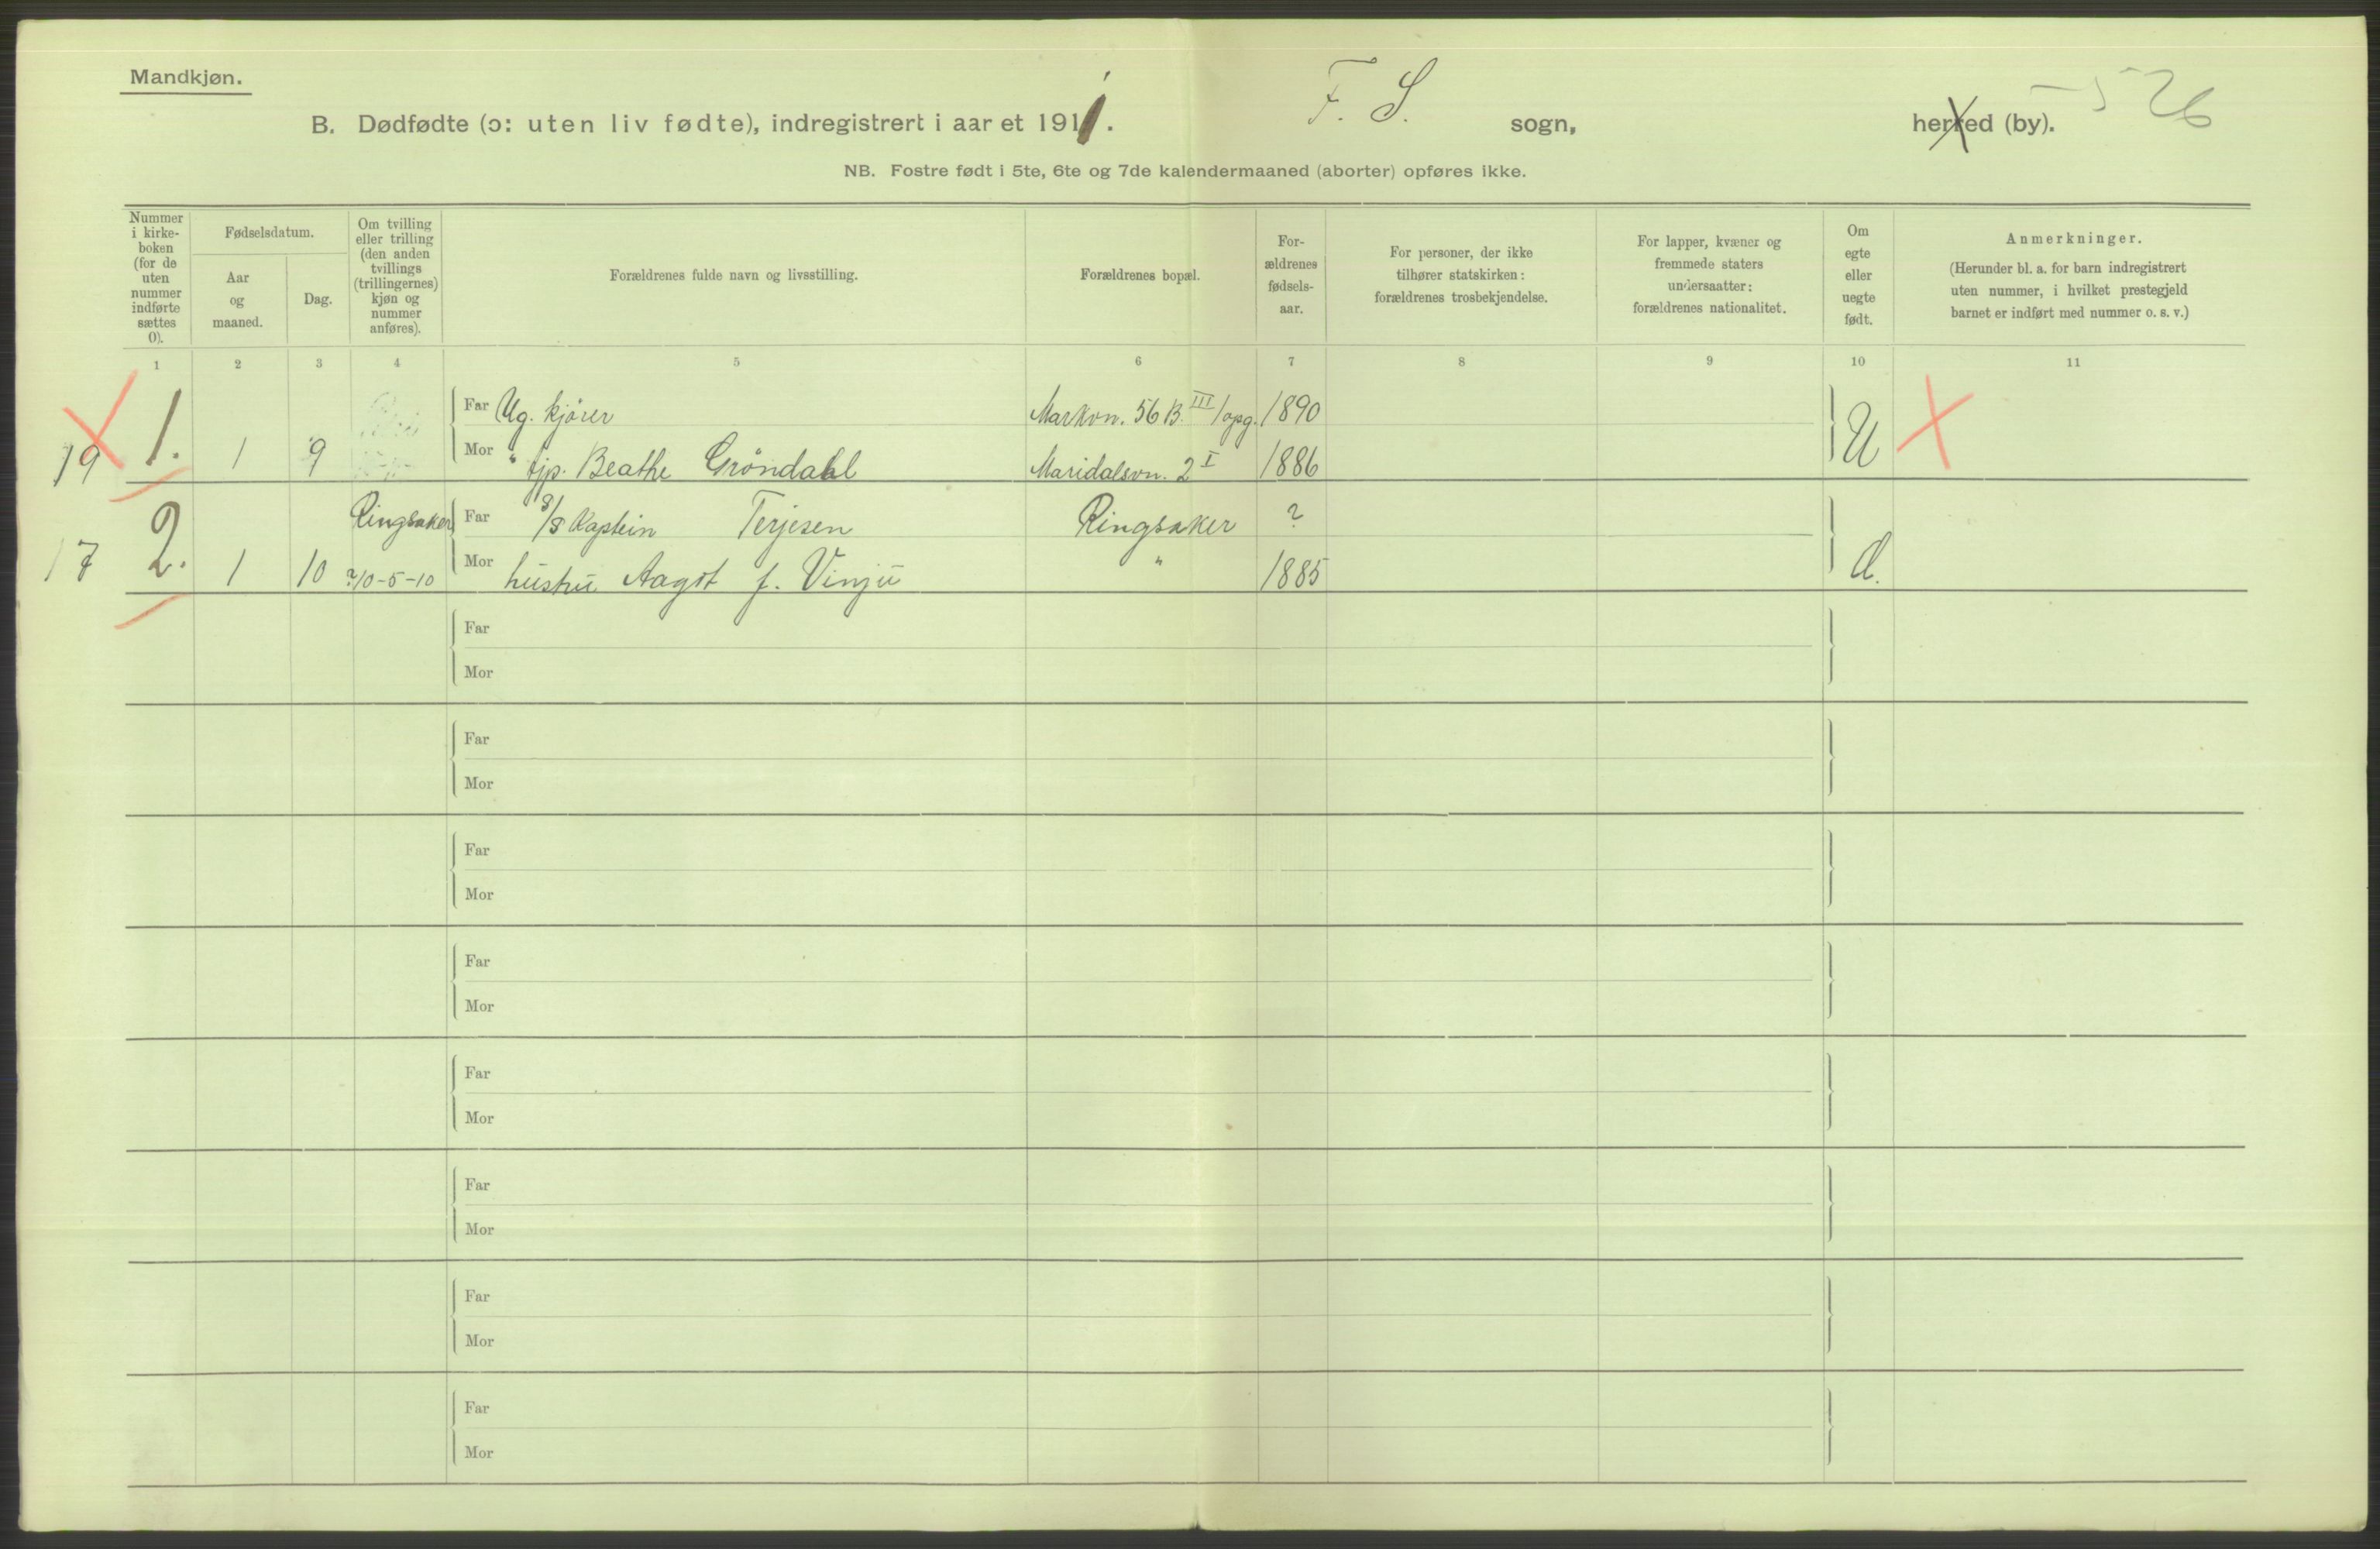 Mandkjøn.
B. Dødfødte (ɔ: uten liv fødte), indregistrert i aaret 1911. F. S. sogn, herred (by). 526
NB. Fostre født i 5te, 6te og 7de kalendermaaned (aborter) opføres ikke.
Nummer i kirke- boken (for de uten nummer indførte sættes 0).
Fødselsdatum.
Aar og maaned.
Dag.
Om tvilling eller trilling (den anden tvillings (trillingernes) kjøn og nummer anføres).
Forældrenes fulde navn og livsstilling.
Forældrenes bopæl.
For- ældrenes fødsels- aar.
For personer, der ikke tilhører statskirken: forældrenes trosbekjendelse.
For lapper, kvæner og fremmede staters undersaatter: forældrenes nationalitet.
Om egte eller uegte født.
Anmerkninger.
(Herunder bl. a. for barn indregistrert uten nummer, i hvilket prestegjeld barnet er indført med nummer o. s. v.)
1 2 3 4 5 6 7 8 9 10 11
Far Ug. kjører Markvn. 56 B. III /opg. 1890
19 1. 1 9 Mor " tjp. Beathe Gröndahl Maridalsvn. 2 I 1886 U
Ringsaker Far S/S Kaptein Terjesen Ringsaker ?
17 2. 1 10 ?/0-5-10 Mor hustru Aagot f. Vinju " 1885 d.
Far
Mor
Far
Mor
Far
Mor
Far
Mor
Far
Mor
Far
Mor
Far
Mor
Far
Mor